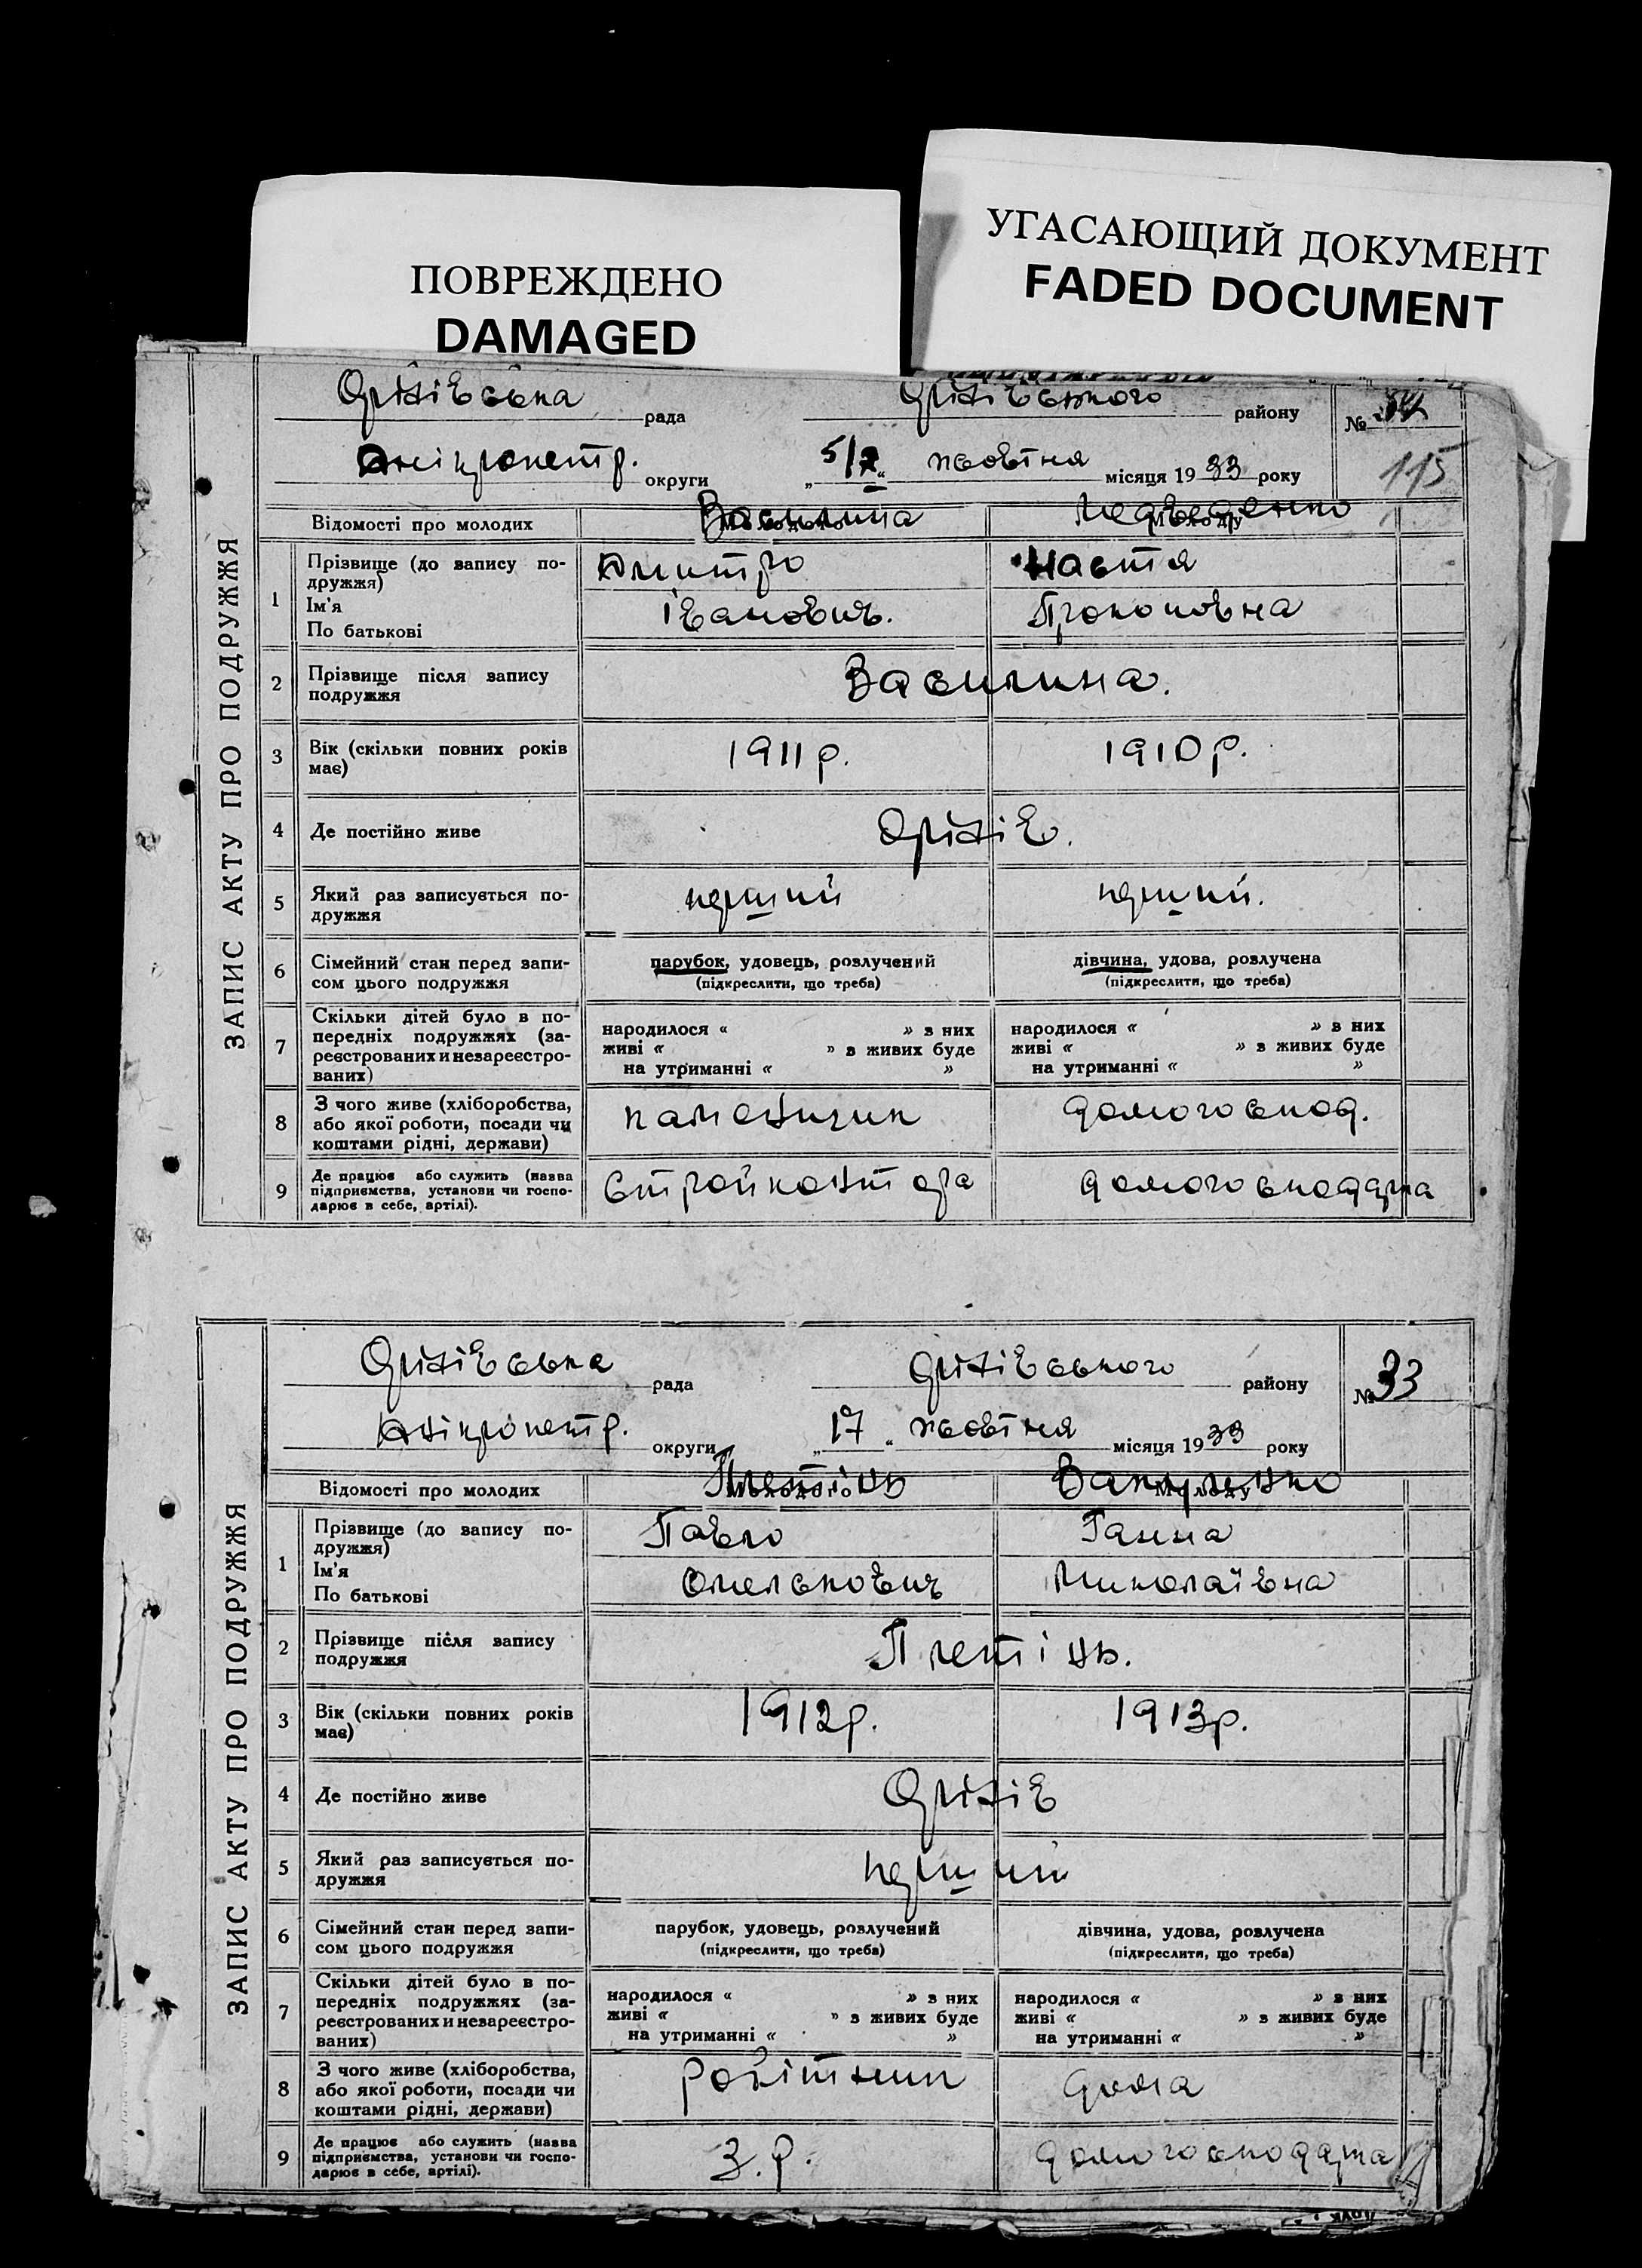 ПОВРЕЖДЕНО
DAMAGED
УГАСАЮЩИЙ ДОКУМЕНТ
FADED DOCUMENT
ЗАПИС АКТУ ПРО ПОДРУЖЖЯ
Оріхівська рада Оріхівського району №
Дніпропетр. округи „5/X“ жовтня місяця 1933 року 115
Відомості про молодих Василина Медведенко
1 Прізвище (до запису по-
дружжя)
Ім'я
По батькові
Дмитро Настя
Іванович. Прокоповна
2 Прізвище після запису
подружжя
Василина.
3 Вік (скільки повних років
має)
1911 р. 1910 р.
4 Де постійно живе Оріхів.
5 Який раз записується по-
дружжя
перший перший.
6 Сімейний стан перед запи-
сом цього подружжя
парубок, удовець, розлучений
(підкреслити, що треба)
дівчина, удова, розлучена
(підкреслити, що треба)
7 Скільки дітей було в по-
передніх подружжях (за-
реєстрованих и незареєстро-
ваних)
народилося « » з них
живі « » з живих буде
на утриманні « »
народилося « » з них
живі « » з живих буде
на утриманні « »
8 З чого живе (хліборобства,
або якої роботи, посади чи
коштами рідні, держави)
каменщик домогоспод.
9 Де працює або служить (назва
підприємства, установи чи госпо-
дарює в себе, артілі).
Стройконтора домогосподарка
ЗАПИС АКТУ ПРО ПОДРУЖЖЯ
Оріхівська рада Оріхівського району № 33
Дніпропетр. округи „17“ жовтня місяця 1933 року
Відомості про молодих Плетінь Вакуленко
1 Прізвище (до запису по-
дружжя)
Ім'я
По батькові
Павло Ганна
Омелькович Миколаївна
2 Прізвище після запису
подружжя
Плетінь.
3 Вік (скільки повних років
має)
1912 р. 1913 р.
4 Де постійно живе Оріхів
5 Який раз записується по-
дружжя
перший
6 Сімейний стан перед запи-
сом цього подружжя
парубок, удовець, розлучений
(підкреслити, що треба)
дівчина, удова, розлучена
(підкреслити, що треба)
7 Скільки дітей було в по-
передніх подружжях (за-
реєстрованих и незареєстро-
ваних)
народилося « » з них
живі « » з живих буде
на утриманні « »
народилося « » з них
живі « » з живих буде
на утриманні « »
8 З чого живе (хліборобства,
або якої роботи, посади чи
коштами рідні, держави)
робітник дома
9 Де працює або служить (назва
підприємства, установи чи госпо-
дарює в себе, артілі).
З. р. домогосподарка